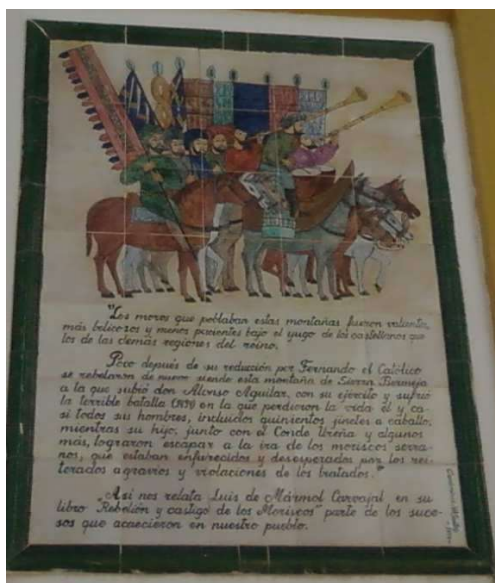 "Los moros que poblaban estas montañas fueron valientes,
más belicosos y menos pacientes bajo el yugo de los castellanos que
los de las demás regiones del reino.
Poco después de su reducción por Fernando el Católico
se rebelaron de nuevo siendo esta montaña de Sierra Bermeja
a la que subió don Alonso Aguilar, con su ejército y sufrió
la terrible batalla en la que perdieron la vida él y ca-
si todos sus hombres, incluidos quinientos jinetes a caballo,
mientras su hijo, junto con el Conde Ureña y algunos
más, lograron escapar a la ira de los moriscos serra-
nos, que estaban enfurecidos y desesperados por los rei-
terados agravios y violaciones de los tratados."
Así nos relata Luis de Mármol Carvajal en su
libro "Rebelión y castigo de los Moriscos" parte de los suce-
sos que acaecieron en nuestro pueblo.